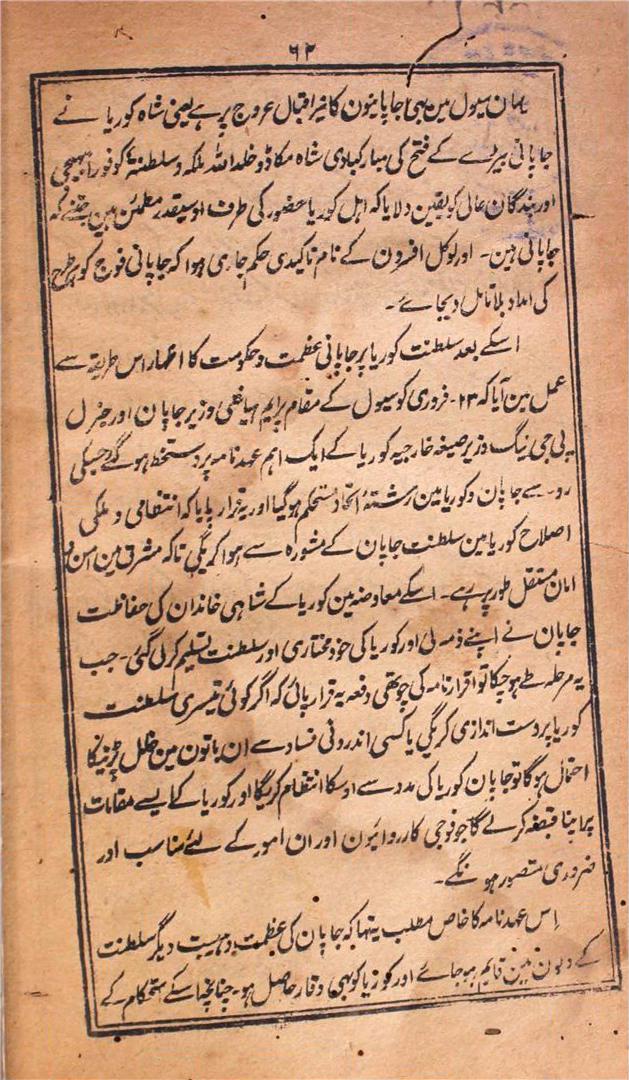 ۶۲
یہان سیول مین بھی جاپانیون کا نیر اقبال عروج پر ہے یعنی شاہ کوریا نے
جاپانی بیڑے کے فتح کی مبارکبادی شاہ مکاڈو خلد اللہ ملکہ و سلطنتہٗ کو فوراً بہیجی
اور بندگان عالی کو یقین دلایا کہ اہل کوریا حضور کی طرف اوسیقدر مطمئن ہین جتنے کہ
جاپانی ہین۔ اور لوکل افسرون کے نام تاکیدی حکم جاری ہوا کہ جاپانی فوج کو ہر طرح
کی امداد بلا تامل دیجاے۔
اسکے بعد سلطنت کوریا پر جاپانی عظمت و حکومت کا اظہار اس طریقہ سے
عمل مین آیا کہ ۲۳۔ فروری کو سیول کے مقام پر ایم ہیاغی وزیر جاپان اور جنرل
یی جی ینگ وزیر صیغہ خارجیہ کوریا کے ایک اہم عہدنامہ پر دستخط ہو گئے جسکی
رو سے جاپان و کوریا مین رشتۂ اتحاد مستحکم ہوگیا اور یہ قرار پایا کہ انتظامی و ملکی
اصلاح کوریا مین سلطنت جاپان کے مشورہ سے ہوا کریگی تاکہ مشرق مین امن و
امان مستقل طور پر رہے۔ اسکے معاوضہ مین کوریا کے شاہی خاندان کی حفاظت
جاپان نے اپنے ذمہ لی اور کوریا کی خود مختاری اور سلطنت تسلیم کر لی گئی۔ جب
یہ مرحلہ طے ہوچکا تو اقرارنامہ کی چوتھی دفعہ یہ قرار پائی کہ اگر کوئی تیسری سلطنت
کوریا پر دست اندازی کریگی یا کسی اندرونی فساد سے ان باتون مین خلل پڑنیکا
احتمال ہوگا تو جاپان کوریا کی مدد سے اوسکا انتظام کریگا اور کوریا کے ایسے مقامات
پر اپنا قبضہ کرلے گا جو فوجی کارروائیون اور ان امور کے لئے مناسب اور
ضروری متصور ہونگے۔
اِس عہدنامہ کا خاص مطلب یہ تہا کہ جاپان کی عظمت و ہیبت دیگر سلطنت
کے دلون مین قایم ہوجاے اور کوریا کو بھی وقار حاصل ہو۔ چنانچہ اسکے استحکام کے